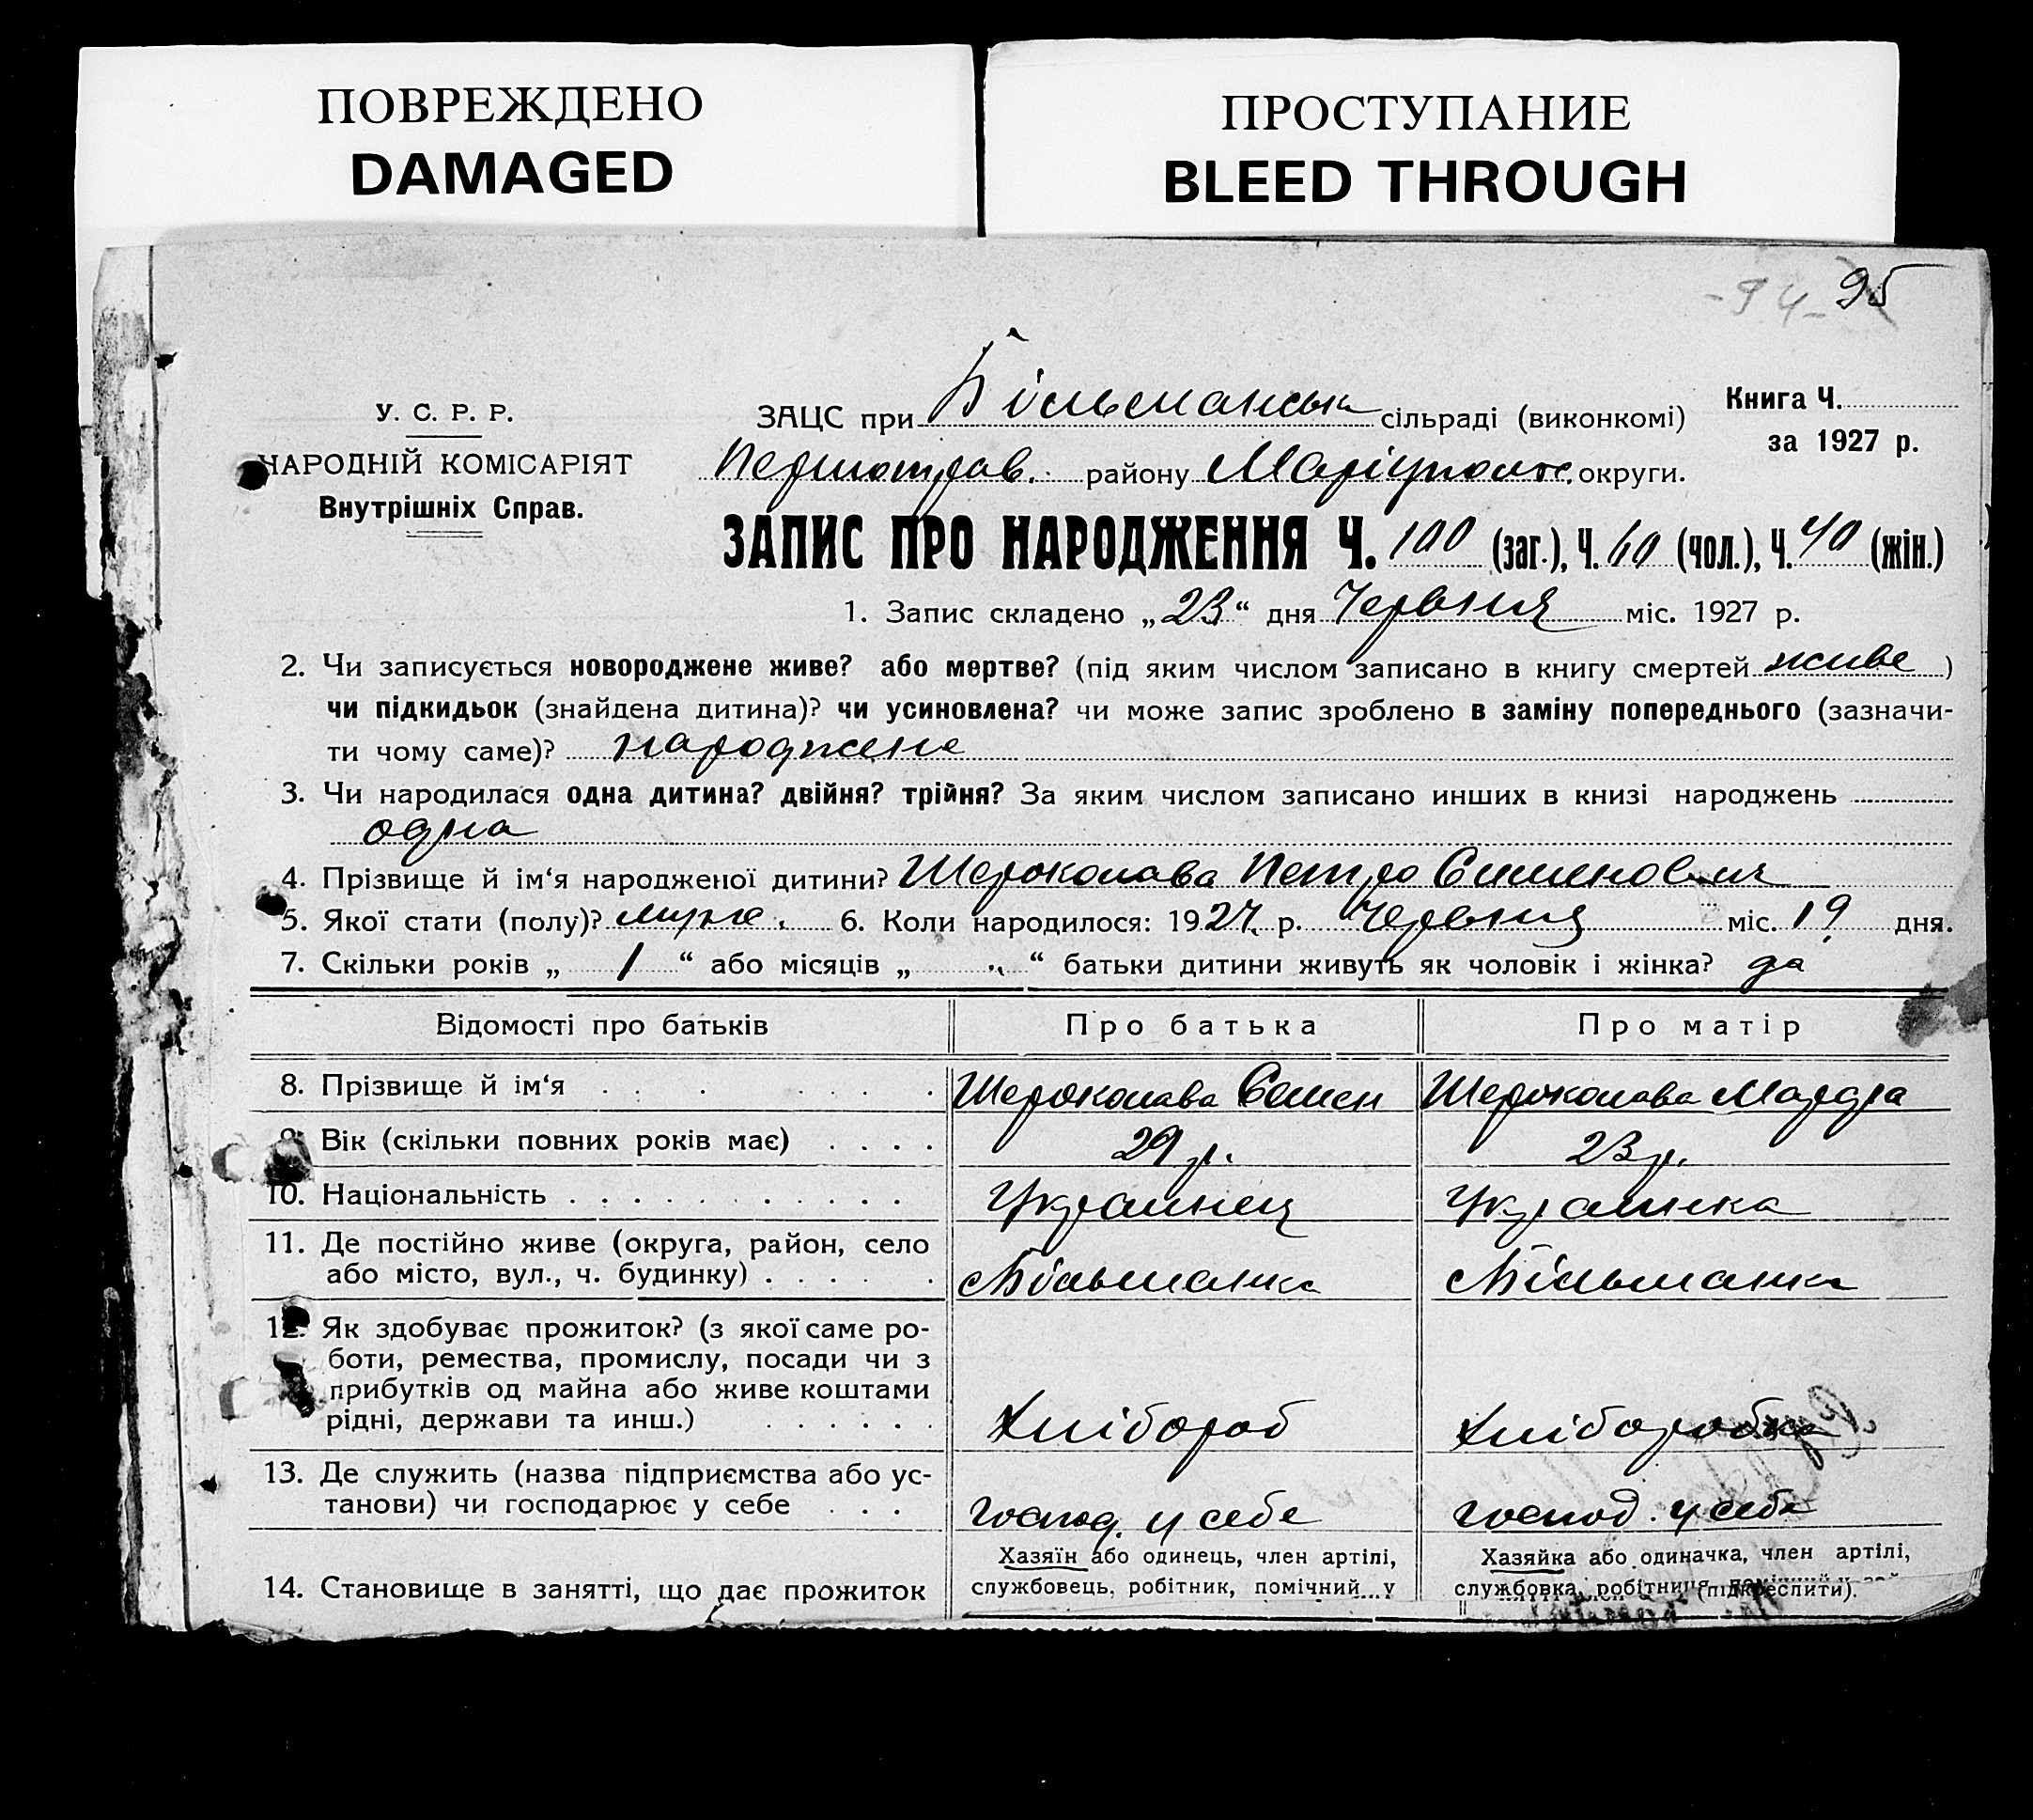 ПОВРЕЖДЕНО
DAMAGED
ПРОСТУПАНИЕ
BLEED THROUGH
-94- 95
У. С. Р. Р.
НАРОДНІЙ КОМІСАРІЯТ
Внутрішніх Справ.
ЗАЦС при Більманськ сільраді (виконкомі)
Першотрав. району Маріупольс. округи.
Книга Ч.
за 1927 р.
ЗАПИС ПРО НАРОДЖЕННЯ Ч. 100 (заг.), Ч. 60 (чол.), Ч. 40 (жін.)
1. Запис складено „23“ дня Червня міс. 1927 р.
2. Чи записується новороджене живе? або мертве? (під яким числом записано в книгу смертей живе )
чи підкидьок (знайдена дитина)? чи усиновлена? чи може запис зроблено в заміну попереднього (зазначи-
ти чому саме)? народжене
3. Чи народилася одна дитина? двійня? трійня? За яким числом записано инших в книзі народжень
одна
4. Прізвище й ім‘я народженої дитини? Шероколава Петро Сименович
5. Якої стати (полу)? муже. 6. Коли народилося: 1927. р. Червня міс. 19 дня.
7. Скільки років „ 1 “ або місяців „ “ батьки дитини живуть як чоловік і жінка? да
Відомості про батьків Про батька Про матір
8. Прізвище й ім‘я Шероколава Семен Шероколава Мардра
9. Вік (скільки повних років має) 29 р. 23 р.
10. Національність Украинец Украинка
11. Де постійно живе (округа, район, село
або місто, вул., ч. будинку) с Більманка с Більманка
12. Як здобуває прожиток? (з якої саме ро-
боти, ремества, промислу, посади чи з
прибутків од майна або живе коштами
рідні, держави та инш.) Хлібороб Хліборобка
13. Де служить (назва підприємства або ус-
танови) чи господарює у себе Господ. у себе Господ. у себе
14. Становище в занятті, що дає прожиток
Хазяїн або одинець, член артілі,
службовець, робітник, помічний у
Хазяйка або одиначка, член артілі,
службовка, робітниця
(підкреслити).